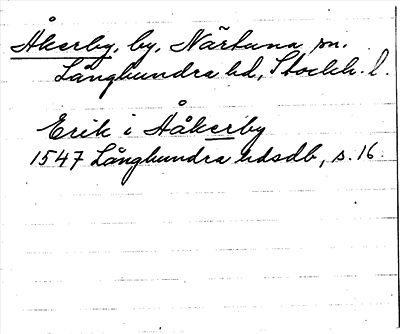 Åkerby, by, Närtuna sn.
Långhundra hd, Stockh. l.
Erik i Ååkerby
1547 Långhundra hdsdb, s. 16.